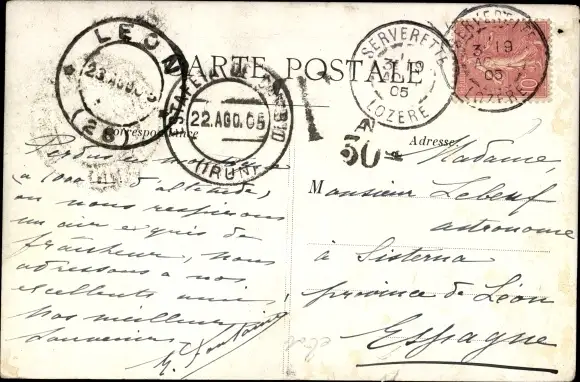 CARTE POSTALE
LEON
23.AGO.05
(26)
22.AGO.05
(IRUN)
SERVERETTE
19
05
LOZERE
SERVERETTE
19
05
LOZERE
10
30
Correspondance
Adresse
Perdus
(à 1000 m d'altitude)
où nous respirons
un air exquis de
fraîcheur, nous
adressons à nos
excellents amis,
nos meilleurs
souvenirs
Madame,
Monsieur Lebeuf
astronome
à Sisterna
province de Léon
Espagne